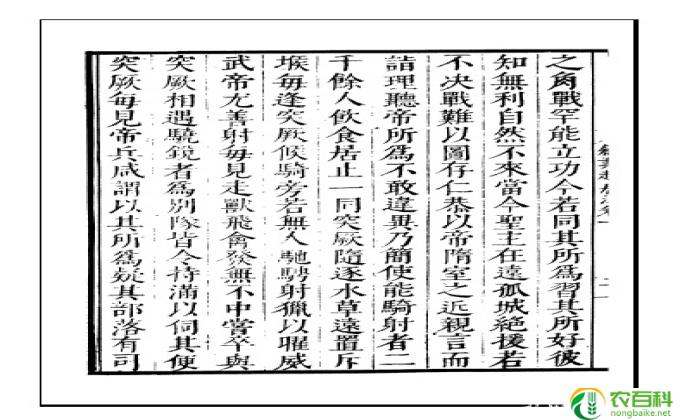 之角戰罕能立功今若同其所為習其所好彼
知無利自然不來當今聖主在遠孤城絕援若
不决戰難以圖存仁恭以帝隋室之近親言而
詣理聽帝所為不敢違異乃簡使能騎射者二
千餘人飲食居止一同突厥隨逐水草遠置斥
堠每逢突厥候騎旁若無人馳騁射獵以曜威
武帝尤善射每見走獸飛禽發無不中嘗卒與
突厥相遇驍銳者為別隊皆令持滿以伺其便
突厥每見帝兵咸謂以其所為疑其部落有司
农百科
nongbaike.net